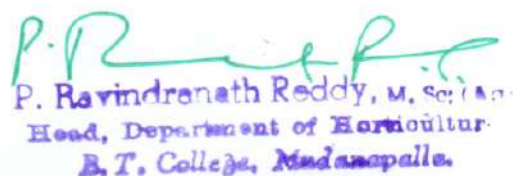 P. Ravindranath Reddy, M. Sc; (Ag.
Head, Department of Horticultur.
B. T. College, Madanapalle.